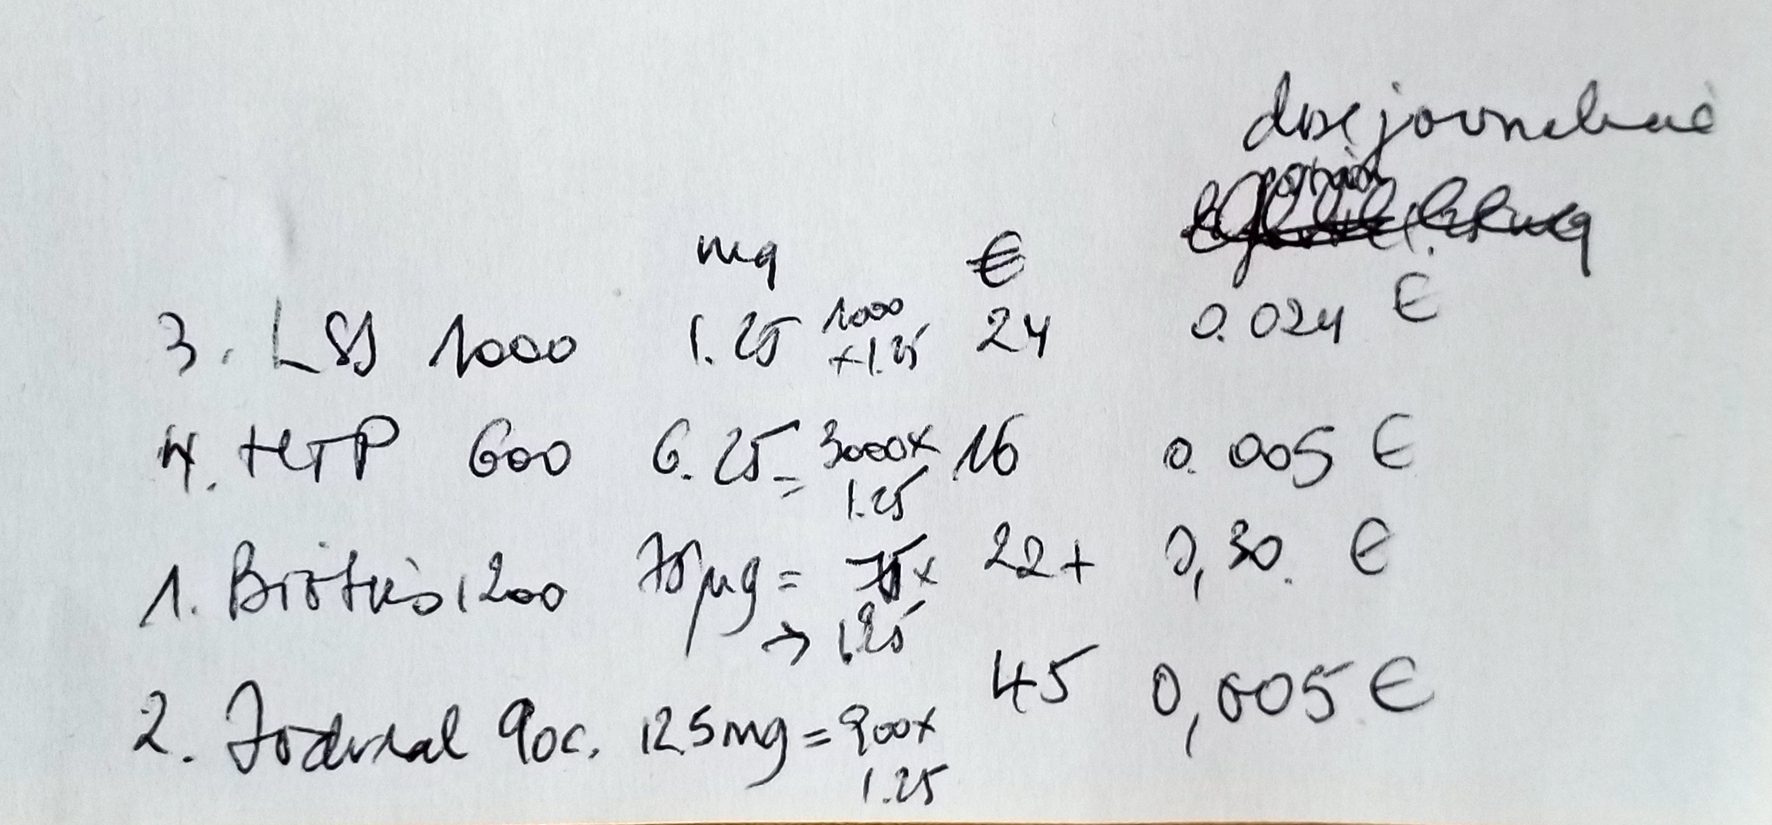 dose journalière
mg €
3. LSJ 1000 1.25 1000 x 1.25 24 0.024 €
4. HTP 600 6.25 = 3000 x 1.25 16 0.005 €
1. 1200 75 µg = 75 x → 1.25 22+ 0,30. €
2. 90c. 12.5 mg = 900 x 1.25 45 0,005 €